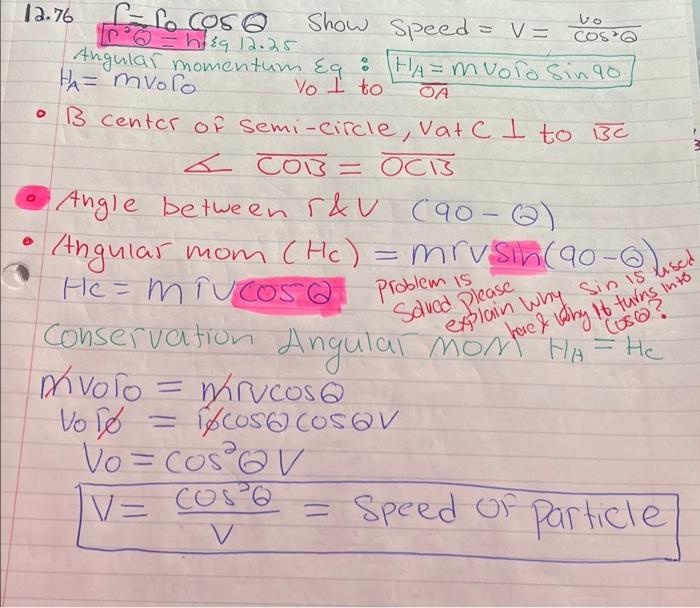 12.76 r = r₀ cosθ Show Speed = V = V₀/cos²θ
r²θ = h Eq 12.25
Angular momentum Eq : HA = mV₀r₀ sin 90
HA = mV₀r₀ V₀ ⊥ to OA
• B center of semi-circle, V at C ⊥ to BC
∠ COB = OCB
• Angle between r & V (90 - θ)
• Angular mom (Hc) = mrv sin(90-θ)
Hc = mrv cosθ
Problem is
Solved Please
explain why sin is used
here & why it turns into
cosθ?
Conservation Angular mom HA = Hc
mV₀r₀ = mrvcosθ
V₀r₀ = r₀cosθcosθV
V₀ = cos²θV
V = cos²θ/V = Speed of particle